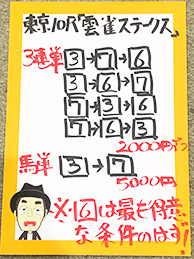 東京10R「雲雀ステークス」
3連単 3→7→6
3→6→7
7→3→6
7→6→3
2000円ずつ
馬単 3→7
5000円
※⑥は最も得意
な条件のはず!